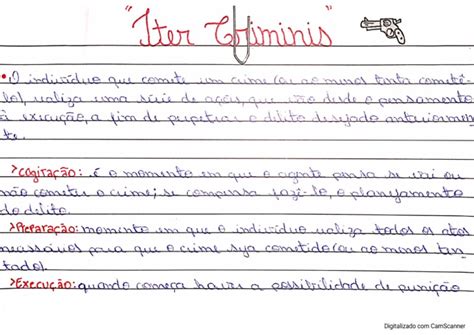 "Iter Criminis"
• O indivíduo que comete um crime (ou ao menos tenta cometê-
lo), realiza uma série de ações, que vão desde o pensamento
à execução, a fim de perpetrar o delito desejado anteriormen-
te.
>Cogitação: é o momento em que o agente pensa se vai ou
não cometer o crime; se compensa fazê-lo, o planejamento
do delito.
>Preparação: momento em que o indivíduo realiza todos os atos
necessários para que o crime seja cometido (ou ao menos ten
tado).
>Execução: quando começa haver a possibilidade de punição
Digitalizado com CamScanner